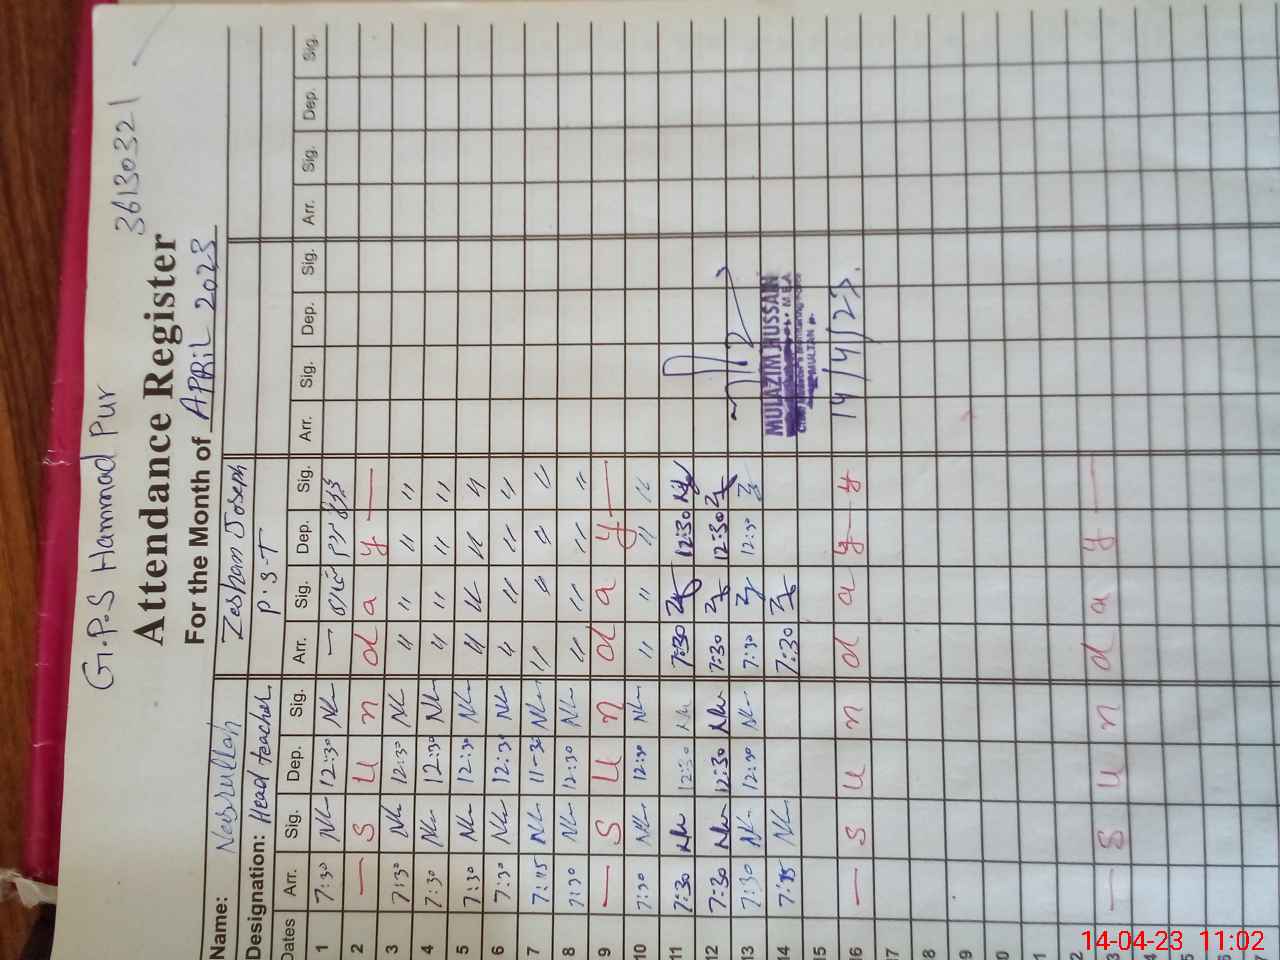 G.P.S Hammad Pur 36130321
Attendance Register
For the Month of APRIL 2023
Name: Nasrullah Zesham Joseph
Designation: Head teacher P.S.T
Dates Arr. Sig. Dep. Sig. Arr. Sig. Dep. Sig. Arr. Sig. Dep. Sig. Arr. Sig. Dep. Sig.
1 7:30 12:30
2 — S u n d a y —
3 7:30 12:30 〃 〃 〃 〃
4 7:30 12:30 〃 〃 〃 〃
5 7:30 12:30 〃 〃 〃 〃
6 7:30 12:30 〃 〃 〃 〃
7 7:15 11-30 〃 〃 〃 〃
8 7:30 12:30 〃 〃 〃 〃
9 — S u n d a y —
10 7:30 12:30 〃 〃 〃 〃
11 7:30 12:30 7:30 12:30
12 7:30 12:30 7:30 12:30
13 7:30 12:30 7:30 12:30
14 7:30 MULAZIM HUSSAIN
M.E.A
MULTAN
15
16 — S u n d a y 14/4/23.
17
18
19
20
21
22
23 — S u n d a y —
24
25
26
27
14-04-23 11:02